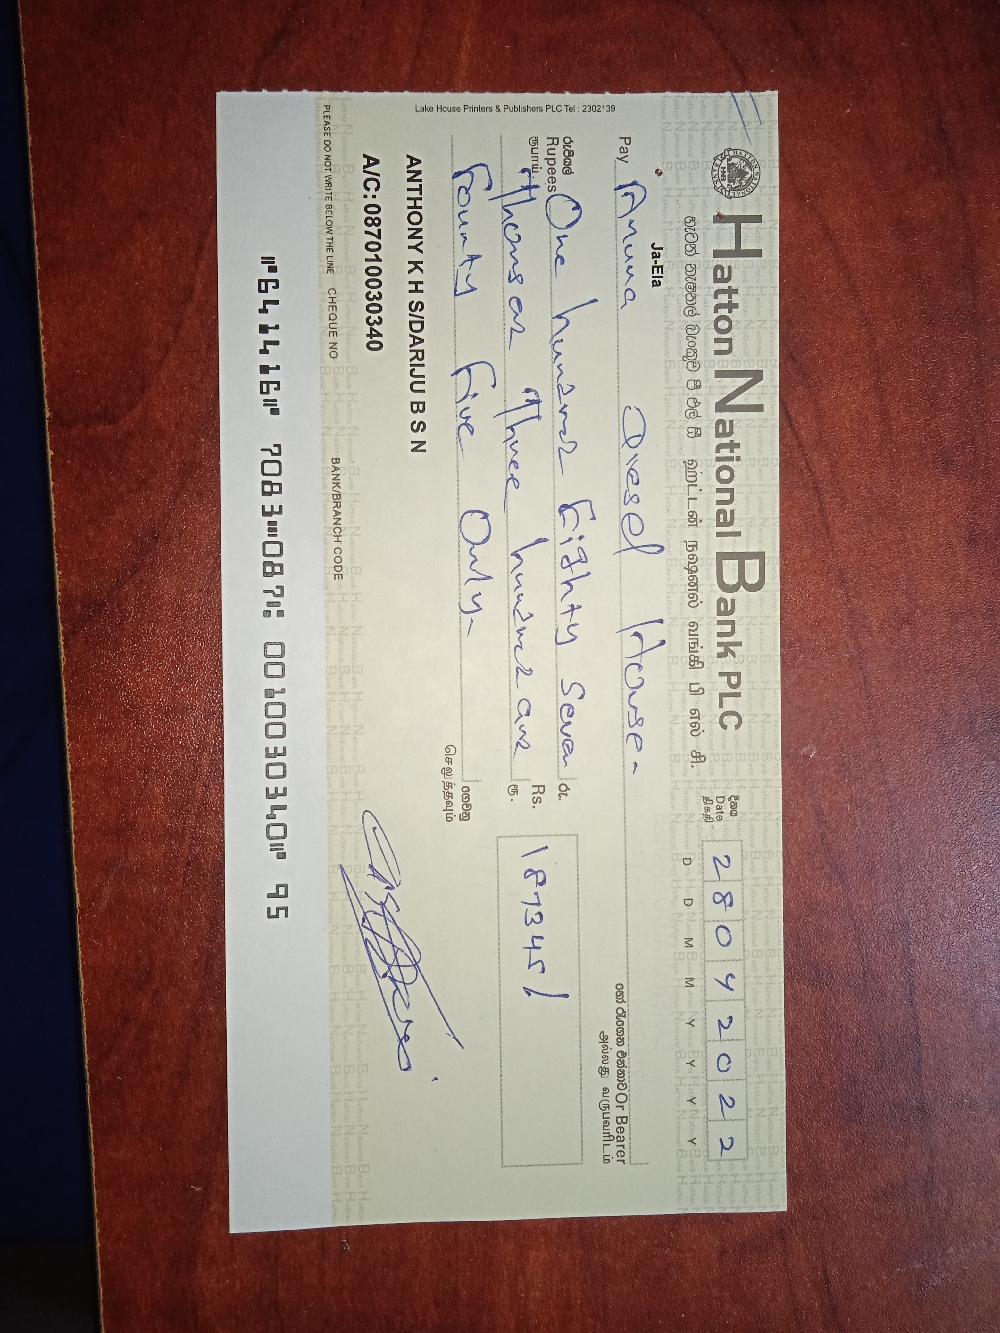 Hatton National Bank PLC
හැටන් නැෂනල් බැංකුව පී.එල්.සී ஹட்டன் நஷனல் வங்கி பி எல் சி.
Ja-Ela
දිනය
Date
திகதி
2 8 0 4 2 0 2 2
D D M M Y Y Y Y
Pay Amuna Diesel House -
හෝ රැගෙන එන්නාට Or Bearer
அல்லது வருபவரிடம்
රුපියල්
Rupees
ரூபாய்
One hundred Eighty Seven
Thousand Three hundred and
Fourty Five Only -
රු.
Rs.
ரூ.
187345/
ගෙවනු
செலுத்தவும்
ANTHONY K H S/DARIJU B S N
A/C: 087010030340
PLEASE DO NOT WRITE BELOW THE LINE CHEQUE NO BANK/BRANCH CODE
⑈641416⑈ 7083⑉087⑆ 0010030340⑈ 95
Lake House Printers & Publishers PLC Tel : 2302139